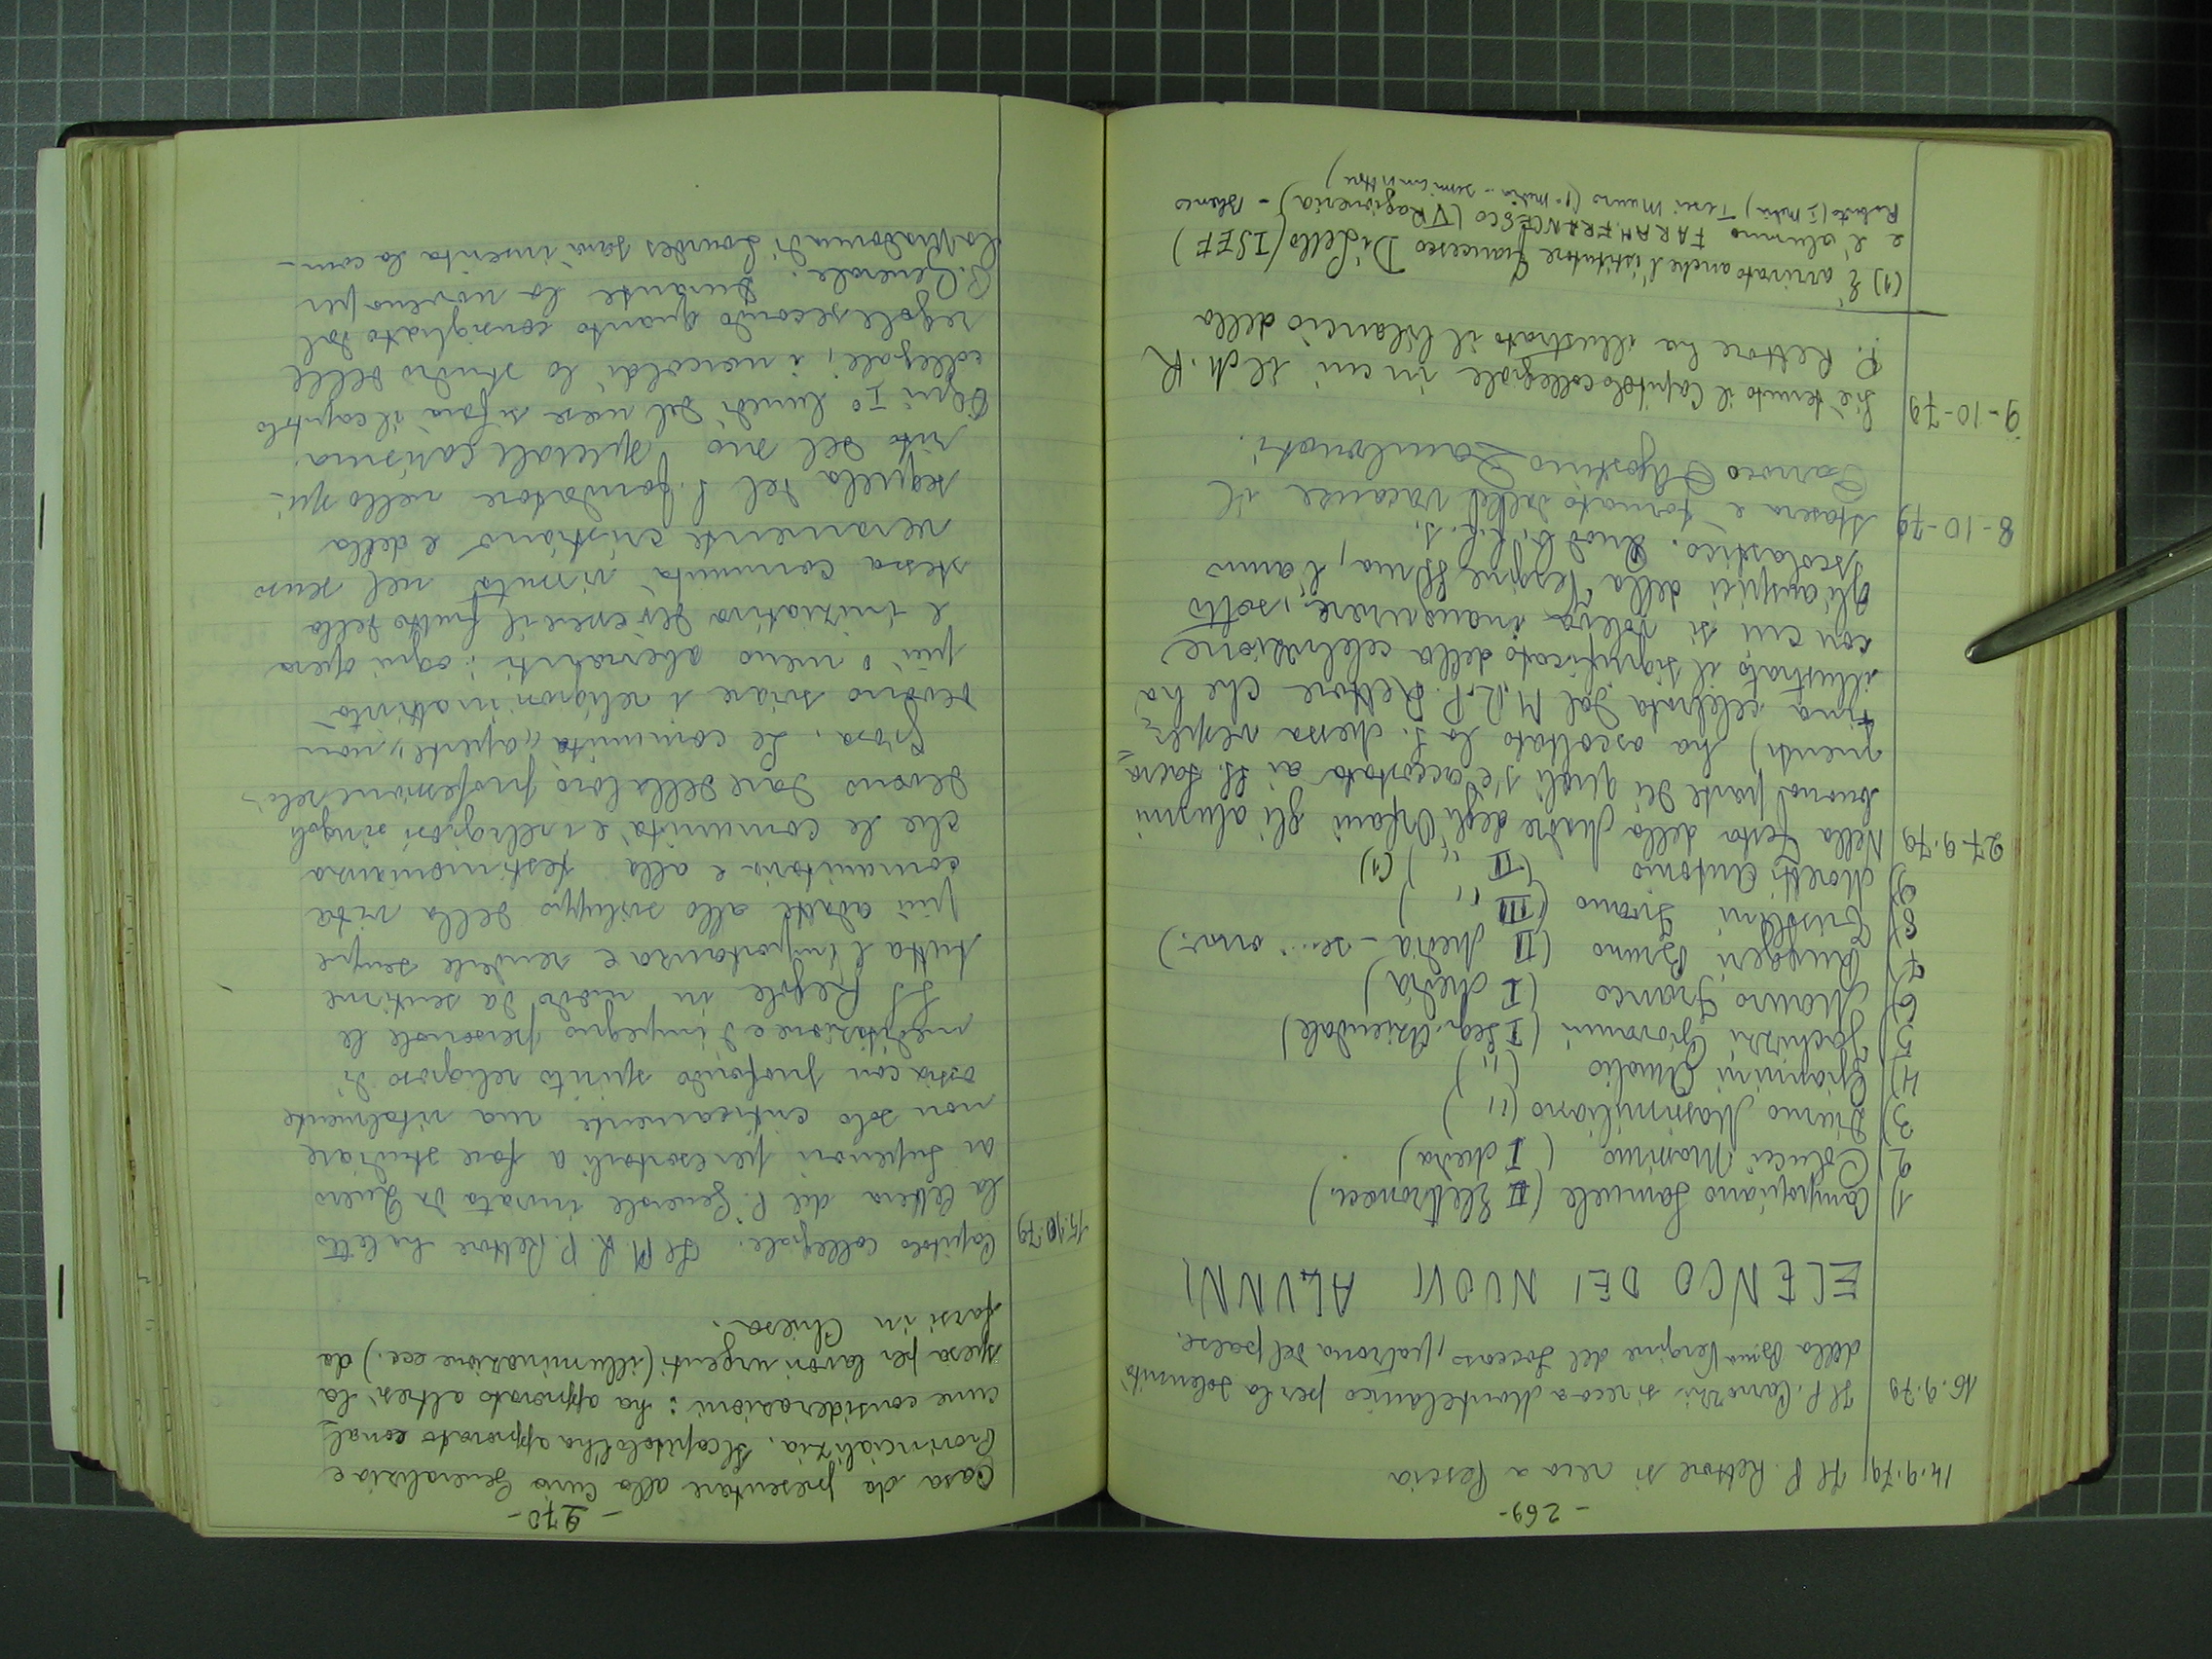 - 269 -
14.9.79 Il P. Rettore si reca a Pescia
16.9.79 Il P. Camozzi si reca a Montelanico per la solennità
della B.ma Vergine del Soccorso, patrona del paese.
ELENCO DEI NUOVI ALUNNI
1) Campogiano Samuele (II Elettronici)
2) Colucci Massimo (I Media)
3) Diurno Massimiliano ( " )
4) Giannini Amalio ( " )
5) Jachizzi Giovanni (I Segr. Aziendale)
6) Mauro Franco (I Media)
7) Ruggeri Bruno (II Media - se... onv.)
8) Trisolini Ivano (III " )
9) Moretti Antonio (II " ) (1)
27.9.79 Nella festa della Madre degli Orfani gli alunni
(buona parte dei quali s'è accostata ai SS. Sacra=
menti) ha ascoltato la S. Messa vesper=
tina celebrata dal M.R.P. Rettore che ha
illustrato il significato della celebrazione
con cui si voleva inaugurare, sotto
gli auspici della Vergine SS.ma, l'anno
scolastico. Quod D.,F.F.S.
8-10-79 Stasera è tornato dalle vacanze il
Parroco P. Agostino Zambonati.
9-10-79 Si è tenuto il Capitolo collegiale in cui il M.R.
P. Rettore ha illustrato il bilancio della
(1) È arrivato anche l'istitutore Francesco Di Lello (ISEF)
e l'alunno FARAH FRANCESCO (V Ragioneria) - Blanco
Roberto (I Media) Tersi Mauro (1a media - semiconvittore)
- 270 -
Casa da presentare alla Curia Generalizia e
Provincializia. Il capitolo l'ha approvato con al=
cune considerazioni: ha approvato altresì la
spesa per lavori urgenti (illuminazione ecc.) da
farsi in Chiesa.
15.10.79 Capitolo collegiale. Il M.R.P. Rettore ha letto
la lettera del P. Generale inviata da Quero
ai Superiori per esortarli a fare studiare
non solo criticamente ma vitalmente
ossia con profondo spirito religioso di
meditazione e d'impegno personale le
SS. Regole in modo da sentirne
tutta l'importanza e renderle sempre
più adatte allo sviluppo della vita
comunitaria e alla testimonianza
che le comunità e i religiosi singoli
devono dare della loro professione reli-
giosa. Le comunità "aperte" non
devono sviare i religiosi in attività
più o meno aberranti: ogni opera
e iniziativa dev'essere il frutto della
stessa comunità vissuta nel senso
veramente cristiano e della
sequela del S. Fondatore nello spi-
rito del suo speciale carisma.
Ogni 1° lunedì del mese si farà il capitolo
collegiale; i mercoldì lo studio delle
regole secondo quanto consigliato dal
P. Generale. Durante la novena per
la Madonna di Lourdes sarà inserita la com-